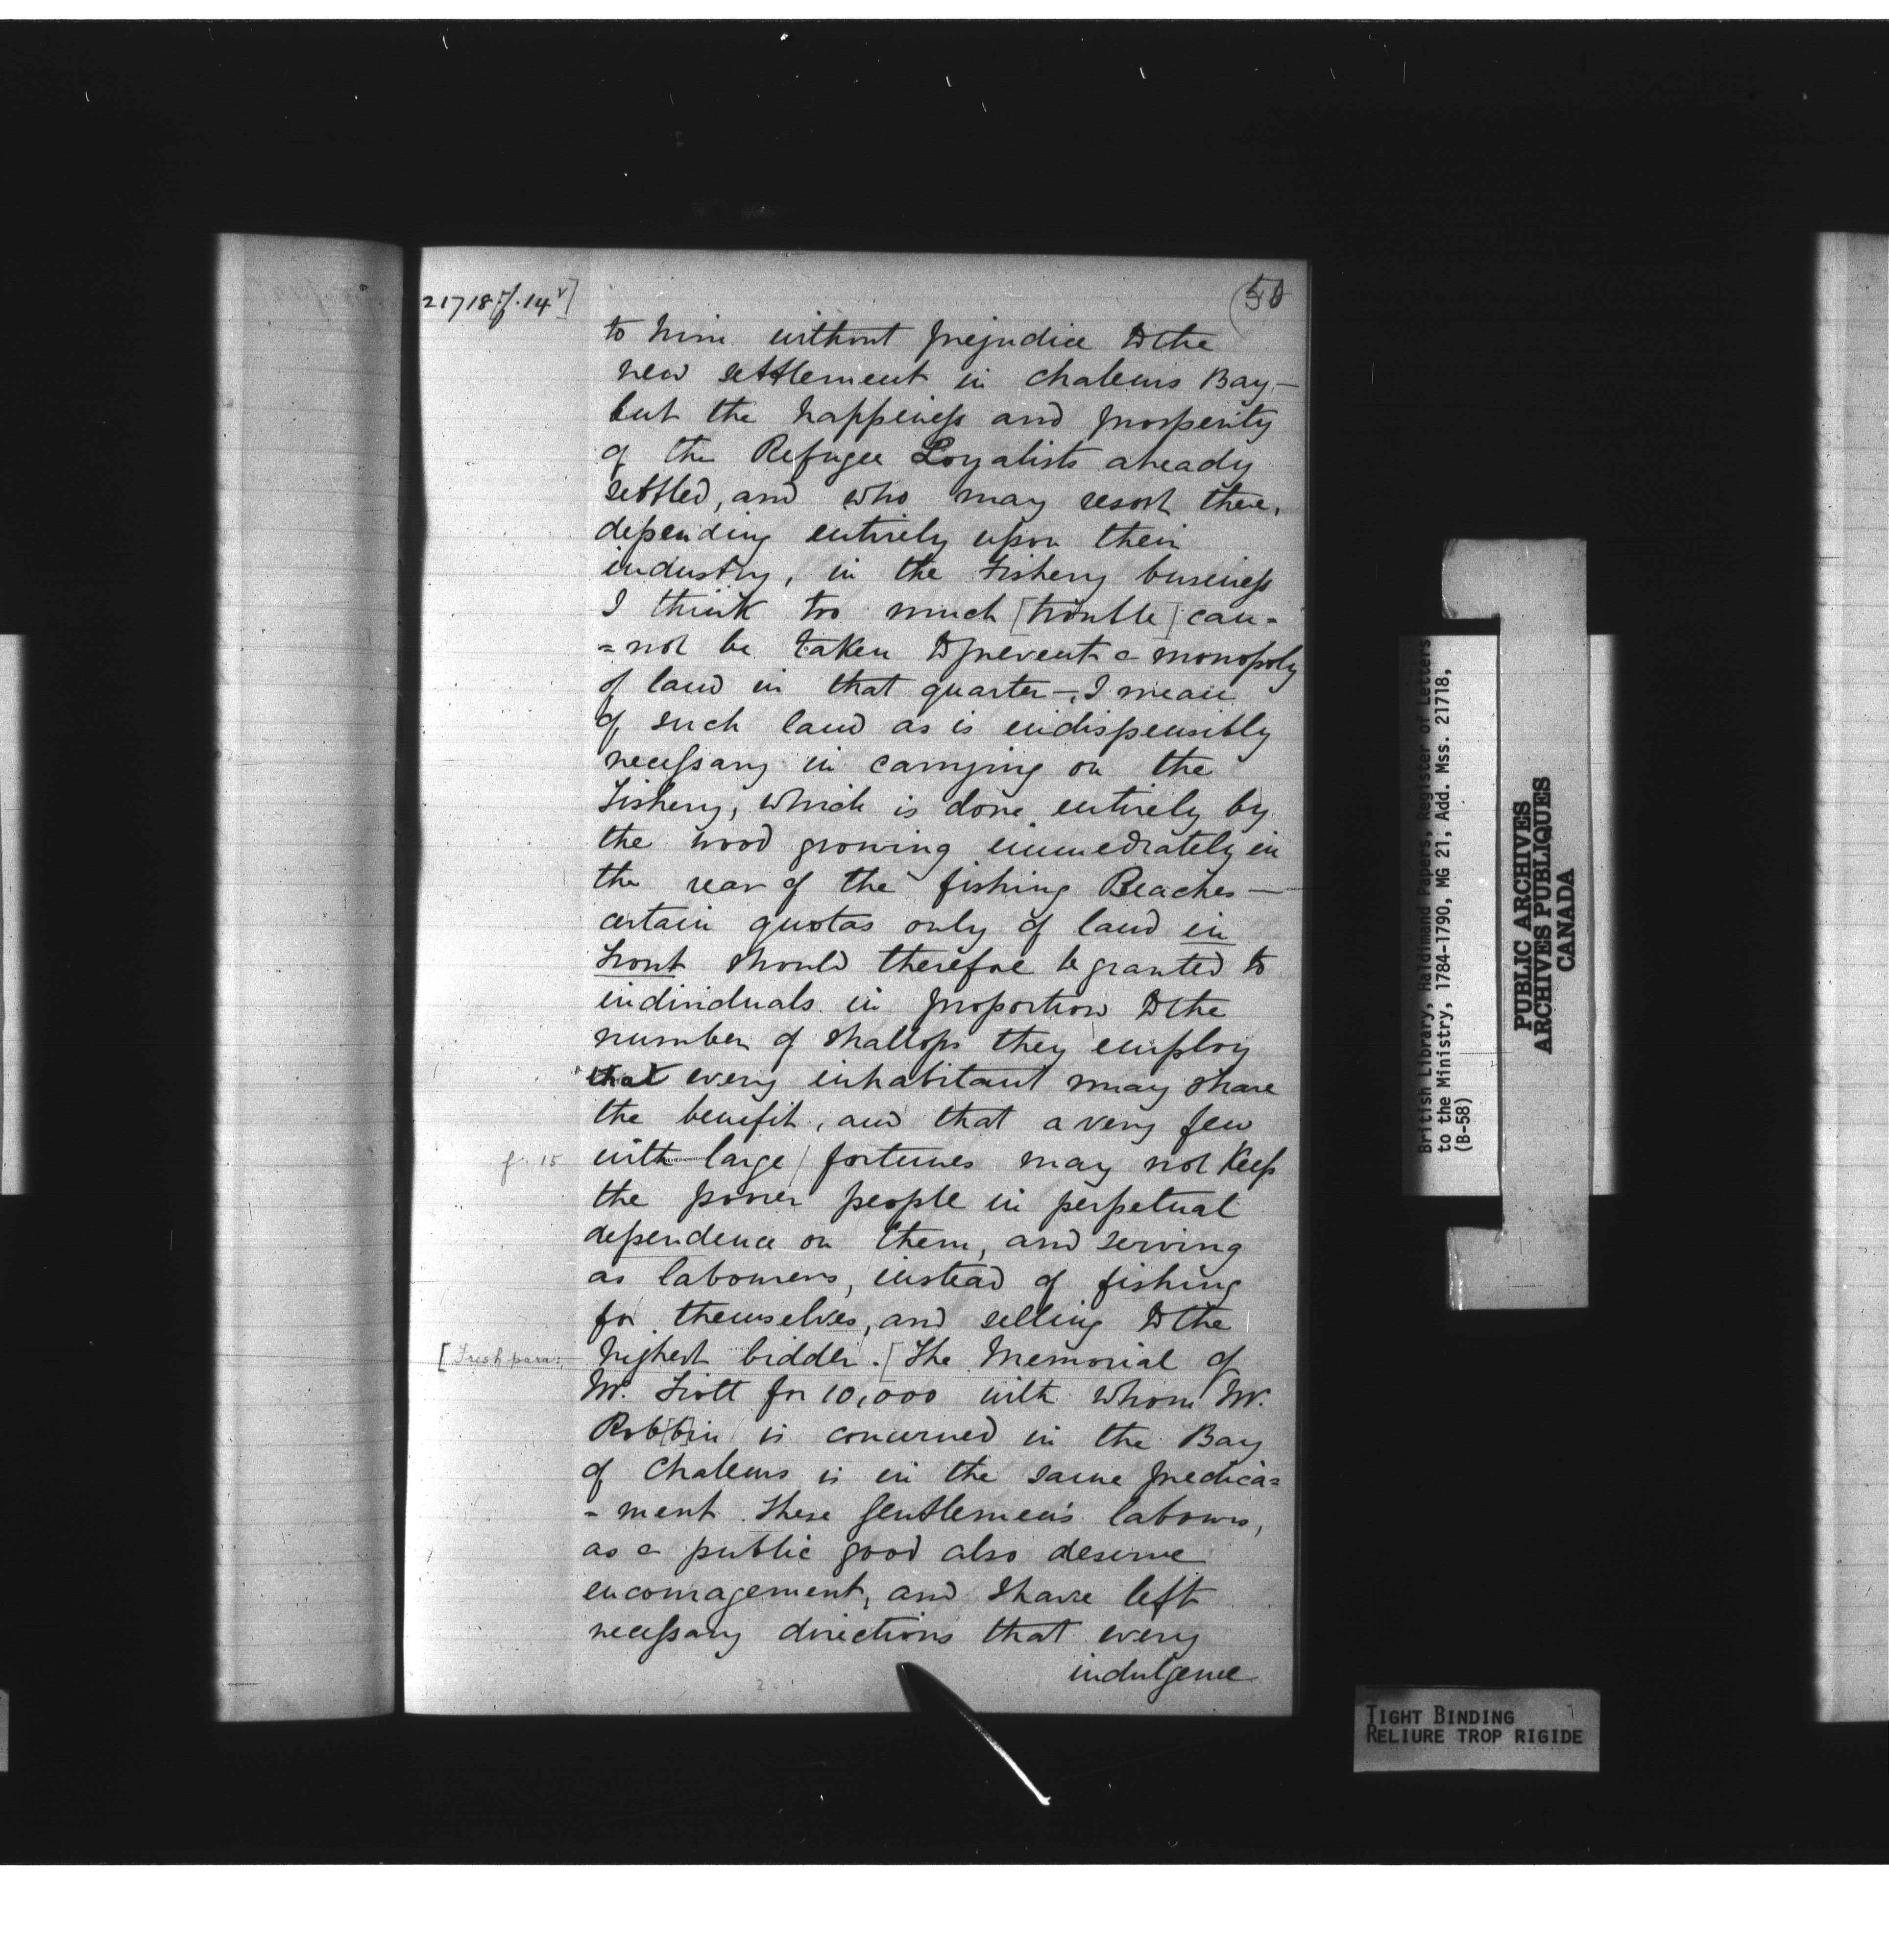 21718 [f. 14v]
50
to him without prejudice to the
new settlement in Chaleurs Bay—
but the happiness and prosperity
of the Refugee Loyalists already
settled, and who may resort there,
depending entirely upon their
industry, in the Fishery business
I think too much [trouble] can-
=not be taken to prevent a monopoly
of land in that quarter—, I mean
of such land as is indispensibly
necessary in carrying on the
Fishery, which is done entirely by
the wood growing immediately in
the rear of the fishing Beaches—
certain quotas only of land in
Front should therefore be granted to
individuals in proportion to the
number of Shallops they employ
that every inhabitant may share
the benefit, and that a very few
f. 15
with large / fortunes may not Keep
the poorer people in perpetual
dependence on them, and serving
as labourers, instead of fishing
for themselves, and selling to the
[Fresh para:
highest bidder. [The Memorial of
Mr. Fiott for 10,000 with whom Mr.
Rob[b]in is concerned in the Bay
of Chaleurs is in the same predica=
-ment. These Gentlemen's labours,
as a public good also deserve
encouragement, and I have left
necessary directions that every
indulgence
British Library, Haldimand Papers, Register of Letters
to the Ministry, 1784-1790, MG 21, Add. Mss. 21718,
(B-58)
PUBLIC ARCHIVES
ARCHIVES PUBLIQUES
CANADA
TIGHT BINDING
RELIURE TROP RIGIDE